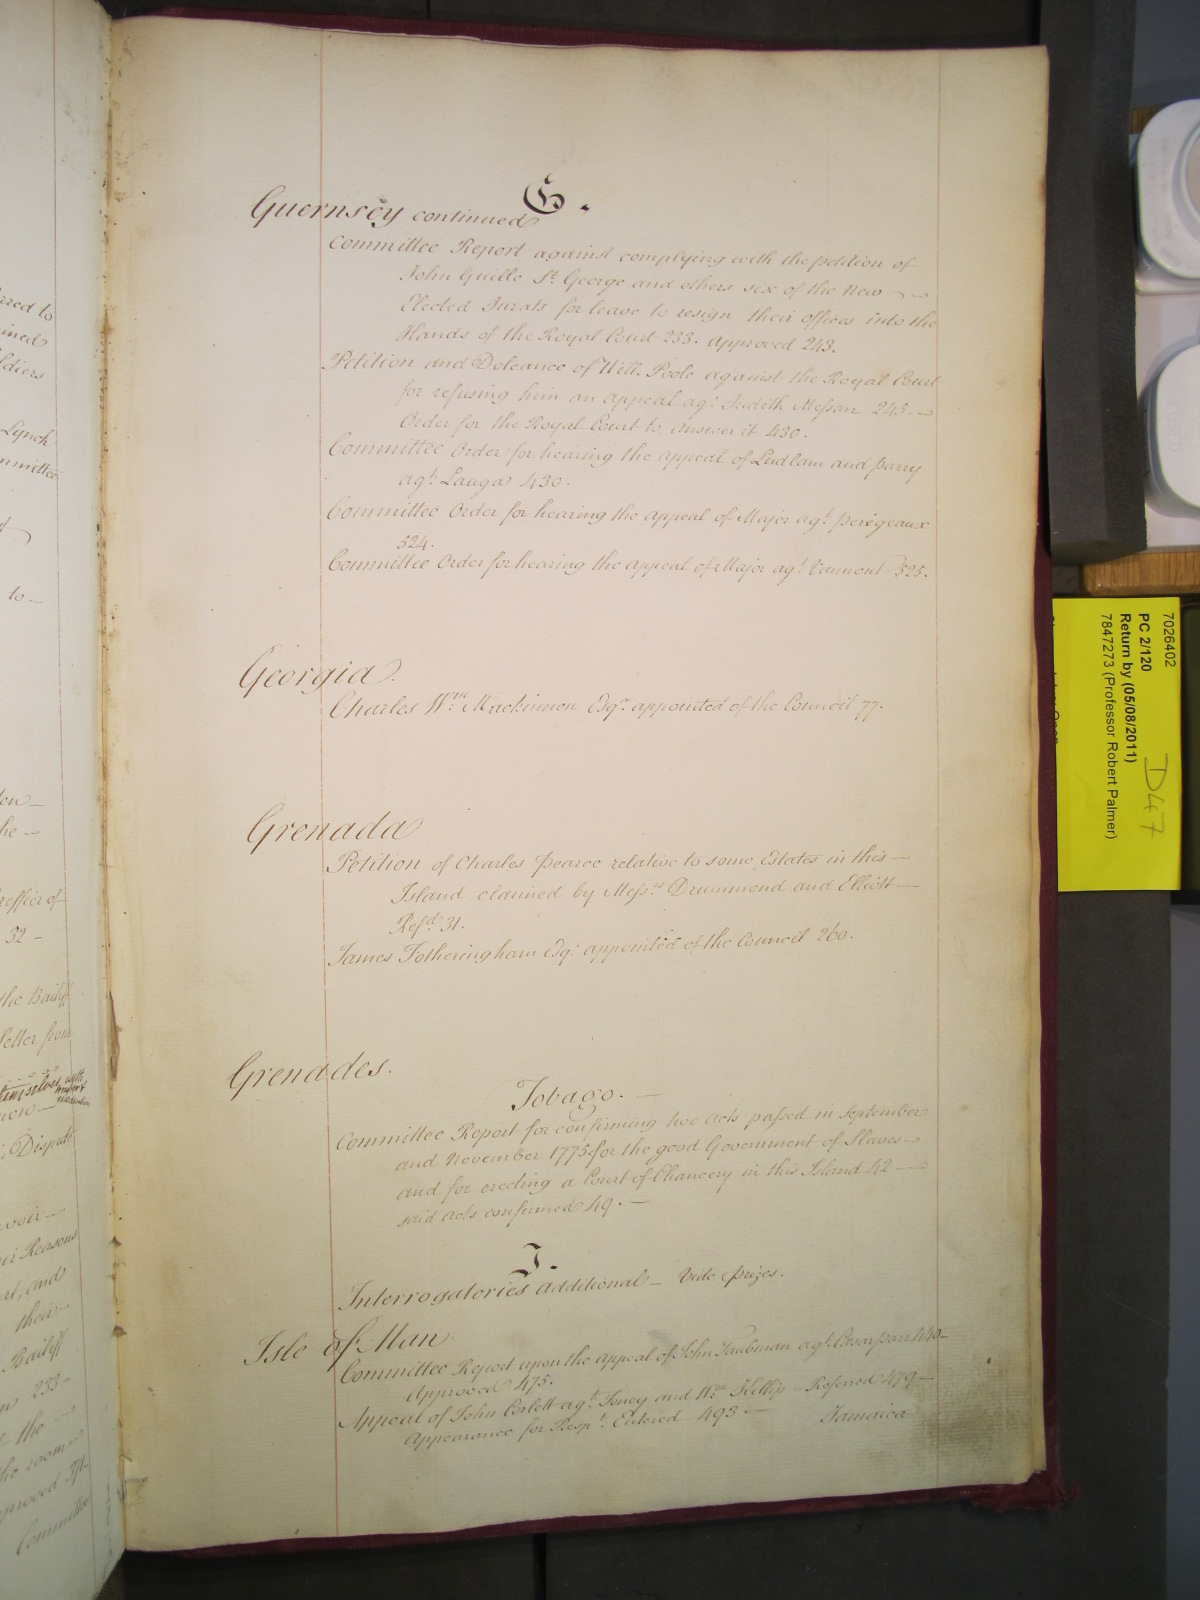 G.
Guernsey continued
Committee Report against complying with the petition of
John Guille St. George and others six of the New
Elected Jurats for leave to resign their offices into the
Hands of the Royal Court 233. approved 243.
Petition and Doleance of Will: Poole against the Royal Court
for refusing him an appeal agt. Judith Messan 245.
Order for the Royal Court to answer it 430.
Committee Order for hearing the appeal of Ludlam and parry
agt. Lauga 430.
Committee Order for hearing the appeal of Major agt. perégeaux
524.
Committee Order for hearing the appeal of Major agt. 525.
Georgia.
Charles Wm. Mackinnen Esqr. appointed of the Council 77.
Grenada
Petition of Charles pearce relative to some Estates in this —
Island claimed by Messrs. Drummond and Elliott —
Refd. 31.
James Fotheringham Esqr. appointed of the Council 260.
Grenades.
Tobago. —
Committee Report for confirming two Acts passed in September
and November 1775 for the good Government of Slaves —
and for erecting a Court of Chancery in this Island 42 —
said Acts confirmed 49. —
I.
Interrogatories additional — Vide prizes.
Isle of Man
Committee Report upon the appeal of John Taubman agt. Cesar parr 440 —
Approved 475.
Appeal of John Corlett agt. and Wm. — Referred 479 —
Appearance for Respt. Entered 493. —
Jamaica
7026402
PC 2/120
Return by (05/08/2011)
7847273 (Professor Robert Palmer)
D47
Lynch
to —
52 —
the Bailiff
Letter from
Dispute
Reasons
and
their
Bailiff
233 —
the
Committee